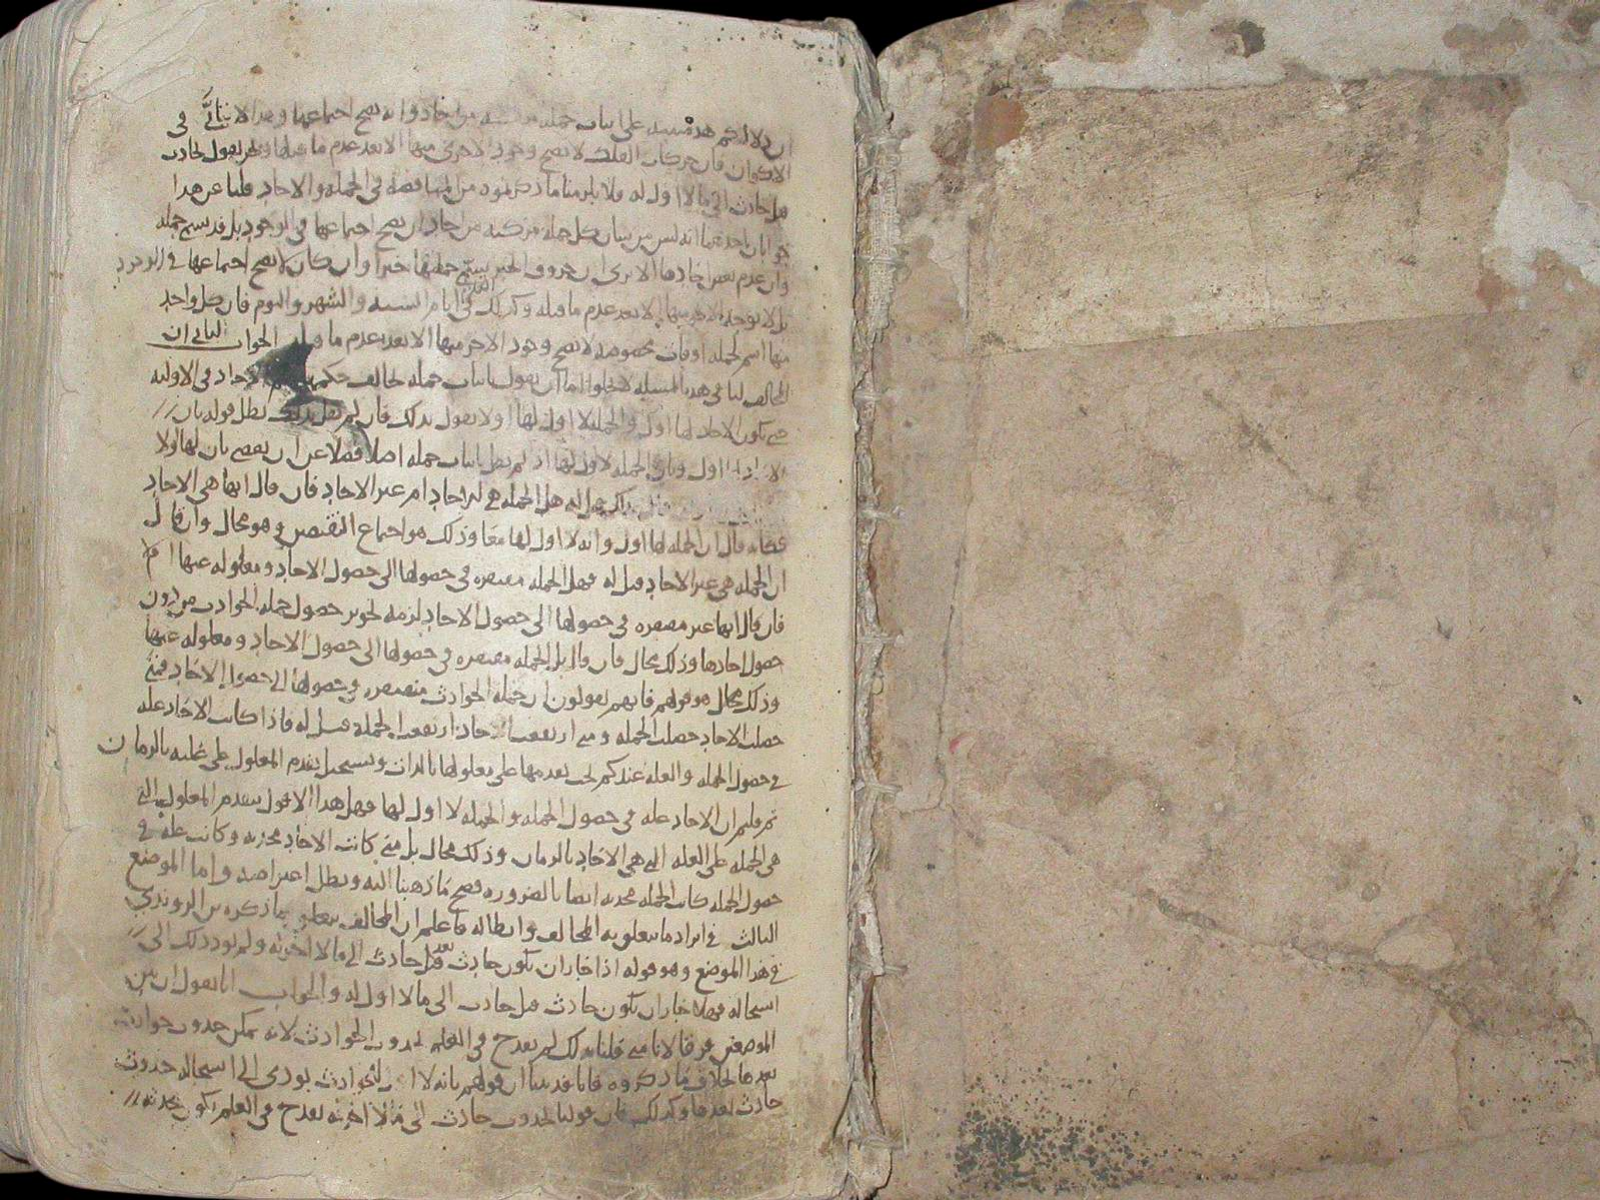 ان دلالتكم هذه مبنية على اثبات جملة من احاد وانه يصح اجتماعها وهذا لا يتأتى في
الاكوان فان حركات الفلك لا يصح وجود الاخرى منها الا بعد عدم ما قبلها ونحن نقول بحادث
قبل حادث الى ما لا اول له فلا يلزمنا ما ذكرتموه من المناقضة في الجملة والاحاد قلنا عن هذا
جوابان احدهما انه ليس من شان كل جملة مركبة من احاد ان يصح اجتماعها في الوجود بل قد تسمى جملة
وان عدم بعض احادها الا ترى ان حروف الخبر تسمى جملتها خبرا وان كان لا يصح اجتماعها في الوجود
بل لا يوجد الاخر منها الا بعد عدم ما قبله وكذلك في ايام السنة والشهر واليوم فان كل واحد
منها اسم لجملة اوقات مخصوصة لا يصح وجود الاخر منها الا بعد عدم ما قبله الجواب الثاني ان
المخالف لنا في هذه المسئلة لا يخلوا اما ان يقول باثبات جملة تخالف حكم الاحاد في الاولية
حتى تكون الاحاد لها اول والجملة لا اول لها او لا يقول بذلك فان لم يقل بذلك بطل قوله بان
اول وبان الجملة لا اول لها اذ لم يقل باثبات جملة اصلا فضلا عن ان يقضي بان لها اولا
بذلك قيل له هل الجملة هي الاحاد ام غير الاحاد فان قال انها هي الاحاد
فكانه قال ان الجملة لها اول وانه لا اول لها معا وذلك هو اجتماع النقيضين وهو محال وان قال
ان الجملة هي غير الاحاد قيل له فهل الجملة مفتقرة في حصولها الى حصول الاحاد ومعلولة عنها ام لا
فان قال انها غير مفتقرة في حصولها الى حصول الاحاد لزمه تجويز حصول جملة الحوادث من دون
حصول احادها وذلك محال فان قال بل الجملة مفتقرة في حصولها الى حصول الاحاد ومعلولة عنها
وذلك هو قولهم فانهم يقولون ان جملة الحوادث مفتقرة في حصولها الى حصول الاحاد فمتى
حصلت الاحاد حصلت الجملة ومتى ارتفعت الاحاد ارتفعت الجملة قيل له فاذا كانت الاحاد علة
في حصول الجملة والعلة عندكم يجب تقدمها على معلولها بالذات ويستحيل تقدم المعلول على علته بالزمان
ثم قلتم ان الاحاد علة في حصول الجملة والجملة لا اول لها فهل هذا الا قول بتقدم المعلول التي
هي الجملة على العلة التي هي الاحاد بالزمان وذلك محال بل متى كانت الاحاد محدثة وكانت علة في
حصول الجملة كانت الجملة محدثة ايضا بالضرورة فصح ما ذهبنا اليه وبطل اعتراضه واما الموضع
الثالث في ايراد ما يتعلق به المخالف وابطاله فاعلم ان المخالف يتعلق بما ذكره بن الروندي
في هذا الموضع وهو قوله اذا جاز ان يكون حادث بعد حادث الى ما لا اخر له ولم يود ذلك الى
استحالة فهلا جاز ان يكون حادث قبل حادث الى ما لا اول له والجواب انا نقول ان بين
الموضعين فرقا لانا متى قلنا بذلك لم يقدح في العلم بحدوث الحوادث لانه يمكن حدوث حوادث
بعدها بخلاف ما ذكروه فانا قد بينا ان قولهم بانه لا اول للحوادث يودي الى استحالة حدوث
حادث بعدها وكذلك فان قولنا بحدوث حادث الى ما لا اخر له لا يقدح في العلم بكون محدثه